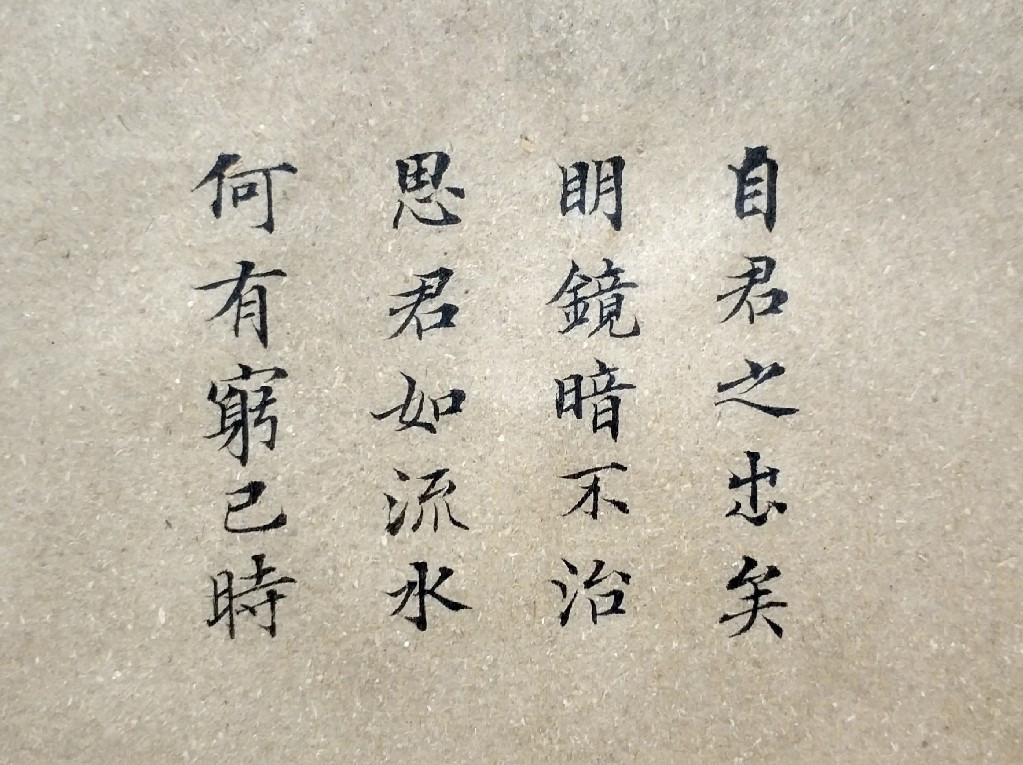 自君之出矣
明鏡暗不治
思君如流水
何有窮已時